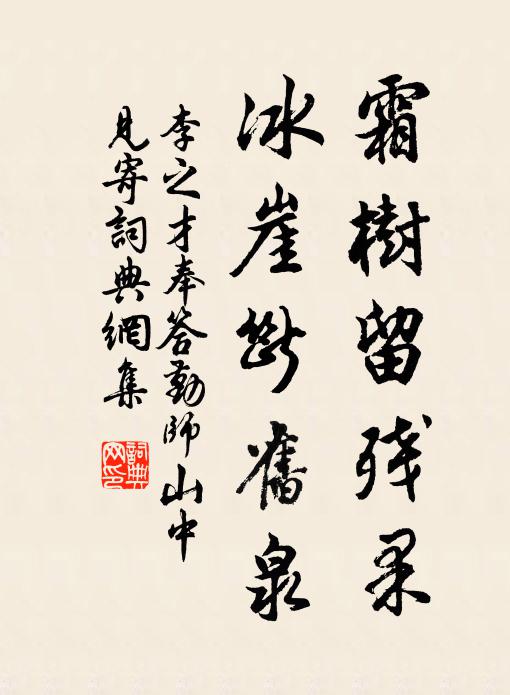 霜樹留殘果
冰崖斷舊泉
李之才奉答勤師山中
見寄詞典網集
詞典網印